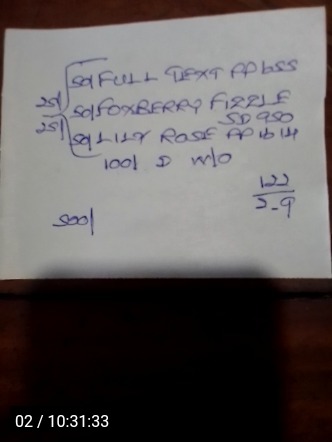 50/ FULL TEXT PP655
25/
50/ FOXBERRY FIZZLE
SD 950
25/
50/ LILY ROSE PP 16 14
100/ D W/O
122
2-9
500/
02 / 10:31:33